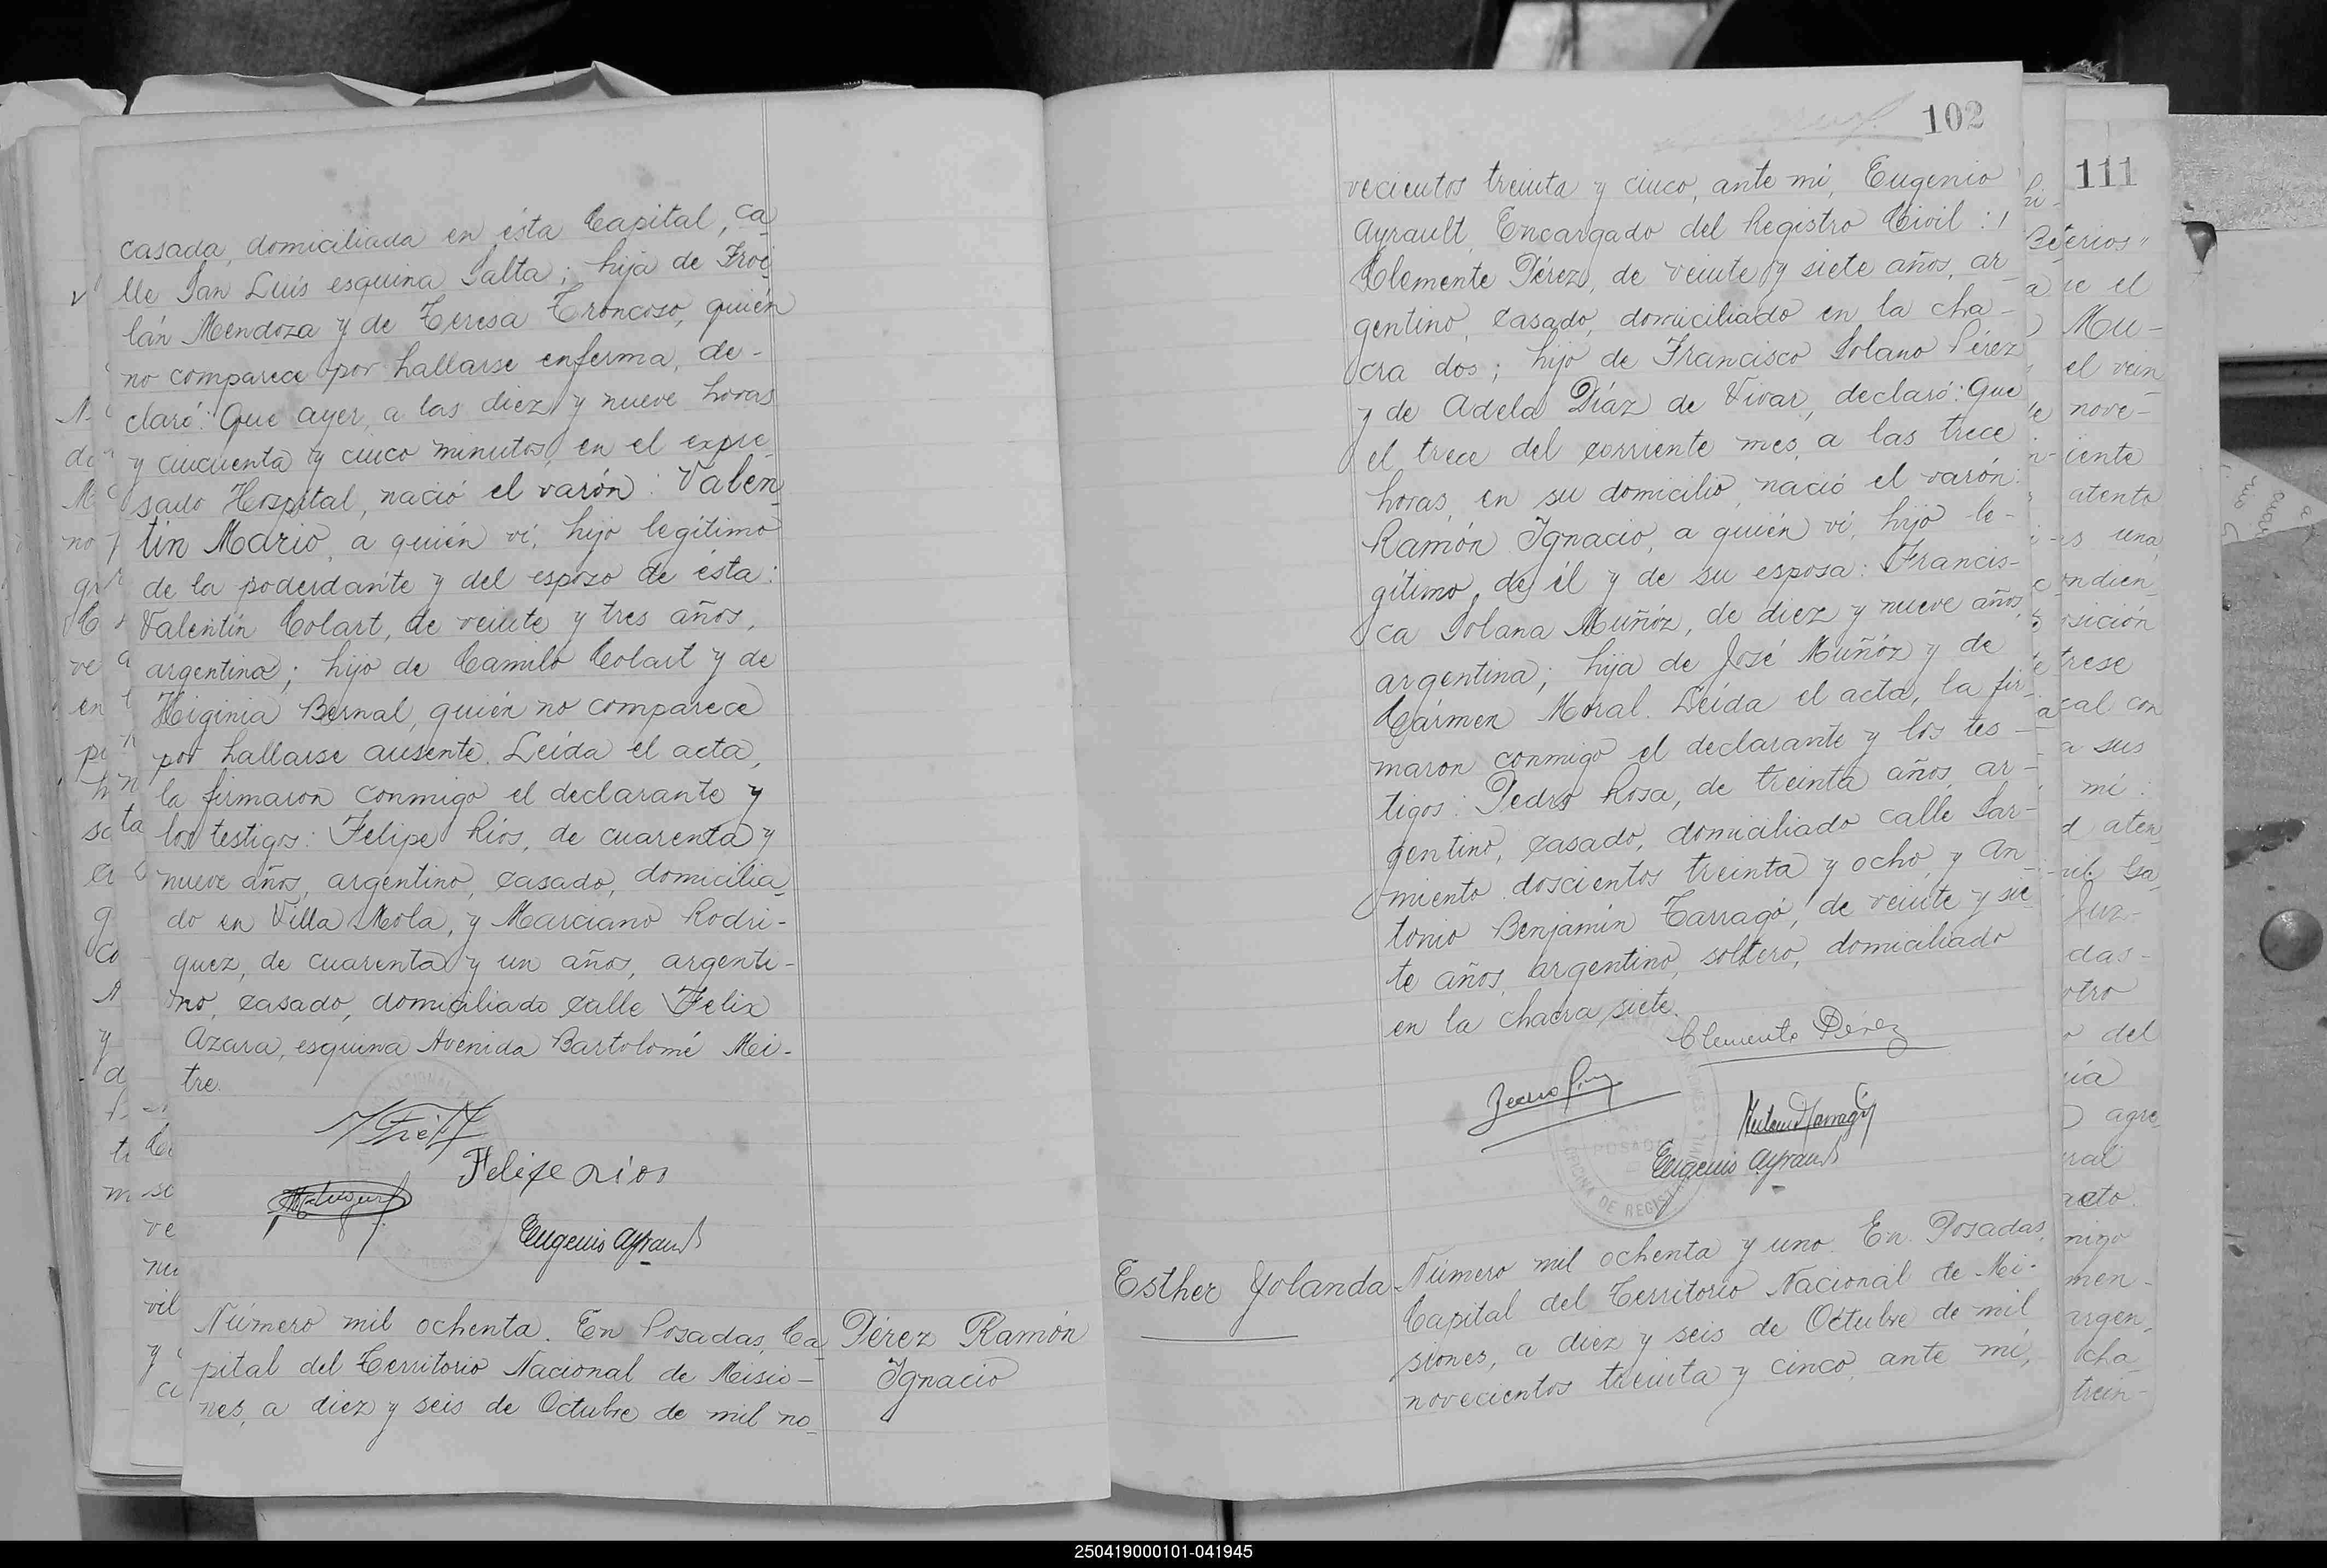 casada, domiciliada en ésta Capital, ca-
lle San Luis esquina Salta; hija de Froi-
lán Mendoza y de Teresa Troncoso, quién
no comparece por hallarse enferma, de-
claró: Que ayer, a las diez y nueve horas
y cincuenta y cinco minutos, en el expre-
sado Hospital, nació el varón: Valen-
tín Mario, a quién ví, hijo legítimo
de la poderdante y del esposo de ésta:
Valentín Colart, de veinte y tres años,
argentino; hijo de Camilo Colart y de
Higinia Bernal, quién no comparece
por hallarse ausente. Leída el acta,
la firmaron conmigo el declarante y
los testigos: Felipe Rios, de cuarenta y
nueve años, argentino, casado, domicilia-
do en Villa Mola, y Marciano Rodri-
guez, de cuarenta y un años, argenti-
no, casado, domiciliado calle Felix
Azara, esquina Avenida Bartolomé Mi-
tre.
Felipe Rios
Eugenio Ayrault
Número mil ochenta. En Posadas, Ca-
pital del Territorio Nacional de Misio-
nes, a diez y seis de Octubre de mil no-
Pérez Ramón
Ignacio
102
vecientos treinta y cinco, ante mí, Eugenio
Ayrault, Encargado del Registro Civil:
Clemente Pérez, de veinte y siete años, ar-
gentino, casado, domiciliado en la cha-
cra dos; hijo de Francisco Solano Pérez
y de Adela Díaz de Vivar, declaró: Que
el trece del corriente mes, a las trece
horas, en su domicilio, nació el varón:
Ramón Ignacio, a quién ví, hijo le-
gítimo, de él y de su esposa: Francis-
ca Solana Muñóz, de diez y nueve años,
argentina; hija de José Muñóz y de
Cármen Moral. Leída el acta, la fir-
maron conmigo el declarante y los tes-
tigos: Pedro Rosa, de treinta años, ar-
gentino, casado, domiciliado calle Sar-
miento doscientos treinta y ocho, y An-
tonio Benjamín Tarragó, de veinte y sie-
te años, argentino, soltero, domiciliado
en la chacra siete.
Clemente Pérez
Eugenio Ayrault
Esther Yolanda
Número mil ochenta y uno. En Posadas,
Capital del Territorio Nacional de Mi-
siones, a diez y seis de Octubre de mil
novecientos treinta y cinco, ante mí,
111
250419000101-041945